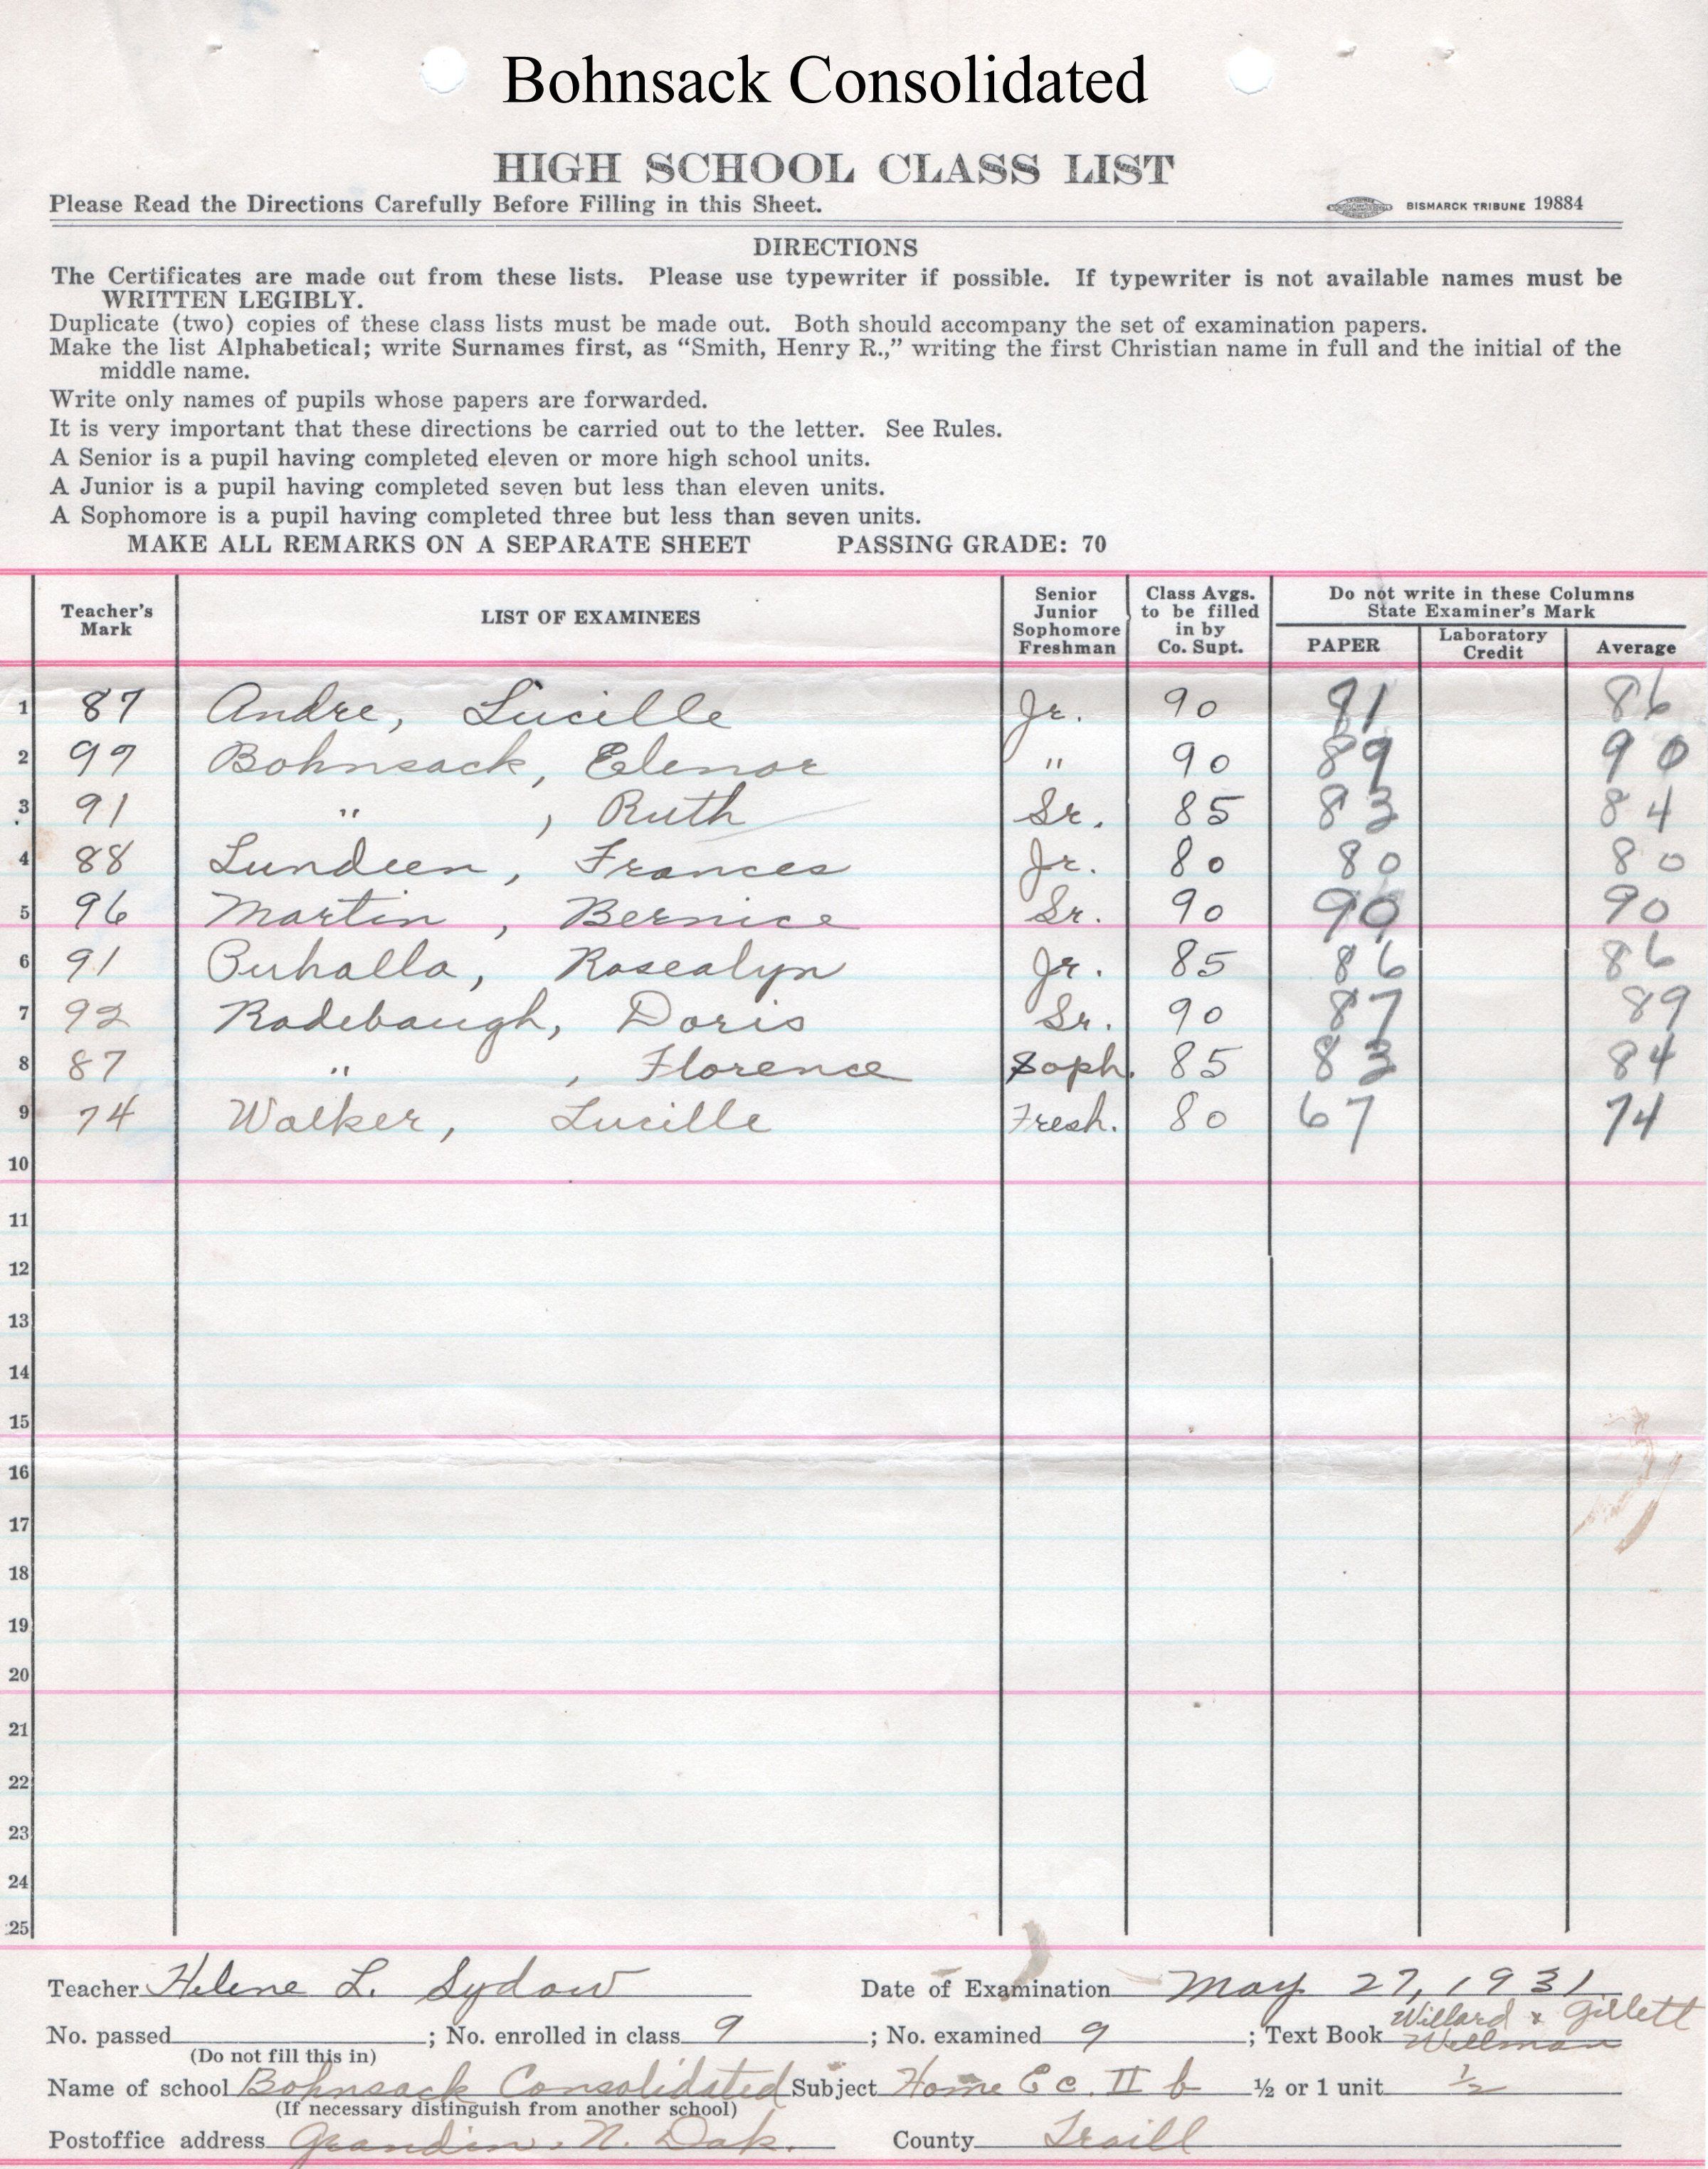 Bohnsack Consolidated
HIGH SCHOOL CLASS LIST
Please Read the Directions Carefully Before Filling in this Sheet. BISMARCK TRIBUNE 19884
DIRECTIONS
The Certificates are made out from these lists. Please use typewriter if possible. If typewriter is not available names must be
WRITTEN LEGIBLY.
Duplicate (two) copies of these class lists must be made out. Both should accompany the set of examination papers.
Make the list Alphabetical; write Surnames first, as “Smith, Henry R.,” writing the first Christian name in full and the initial of the
middle name.
Write only names of pupils whose papers are forwarded.
It is very important that these directions be carried out to the letter. See Rules.
A Senior is a pupil having completed eleven or more high school units.
A Junior is a pupil having completed seven but less than eleven units.
A Sophomore is a pupil having completed three but less than seven units.
MAKE ALL REMARKS ON A SEPARATE SHEET PASSING GRADE: 70
Teacher's Mark LIST OF EXAMINEES Senior Junior Sophomore Freshman Class Avgs. to be filled in by Co. Supt. Do not write in these Columns State Examiner's Mark PAPER Laboratory Credit Average
1 87 Andre, Lucille Jr. 90 81 86
2 99 Bohnsack, Elenor " 90 89 90
3 91 " , Ruth Sr. 85 83 84
4 88 Lundeen, Frances Jr. 80 80 80
5 96 Martin, Bernice Sr. 90 90 90
6 91 Puhalla, Rosealyn Jr. 85 86 86
7 92 Radebaugh, Doris Sr. 90 87 89
8 87 " , Florence Soph. 85 83 84
9 74 Walker, Lucille Fresh. 80 67 74
10
11
12
13
14
15
16
17
18
19
20
21
22
23
24
25
Teacher Helene L. Sydow Date of Examination May 27, 1931
Willard & Gillett
No. passed ; No. enrolled in class 9 ; No. examined 9 ; Text Book Wellman
(Do not fill this in)
Name of school Bohnsack Consolidated Subject Home Ec. II b ½ or 1 unit ½
(If necessary distinguish from another school)
Postoffice address Grandin, N. Dak. County Traill